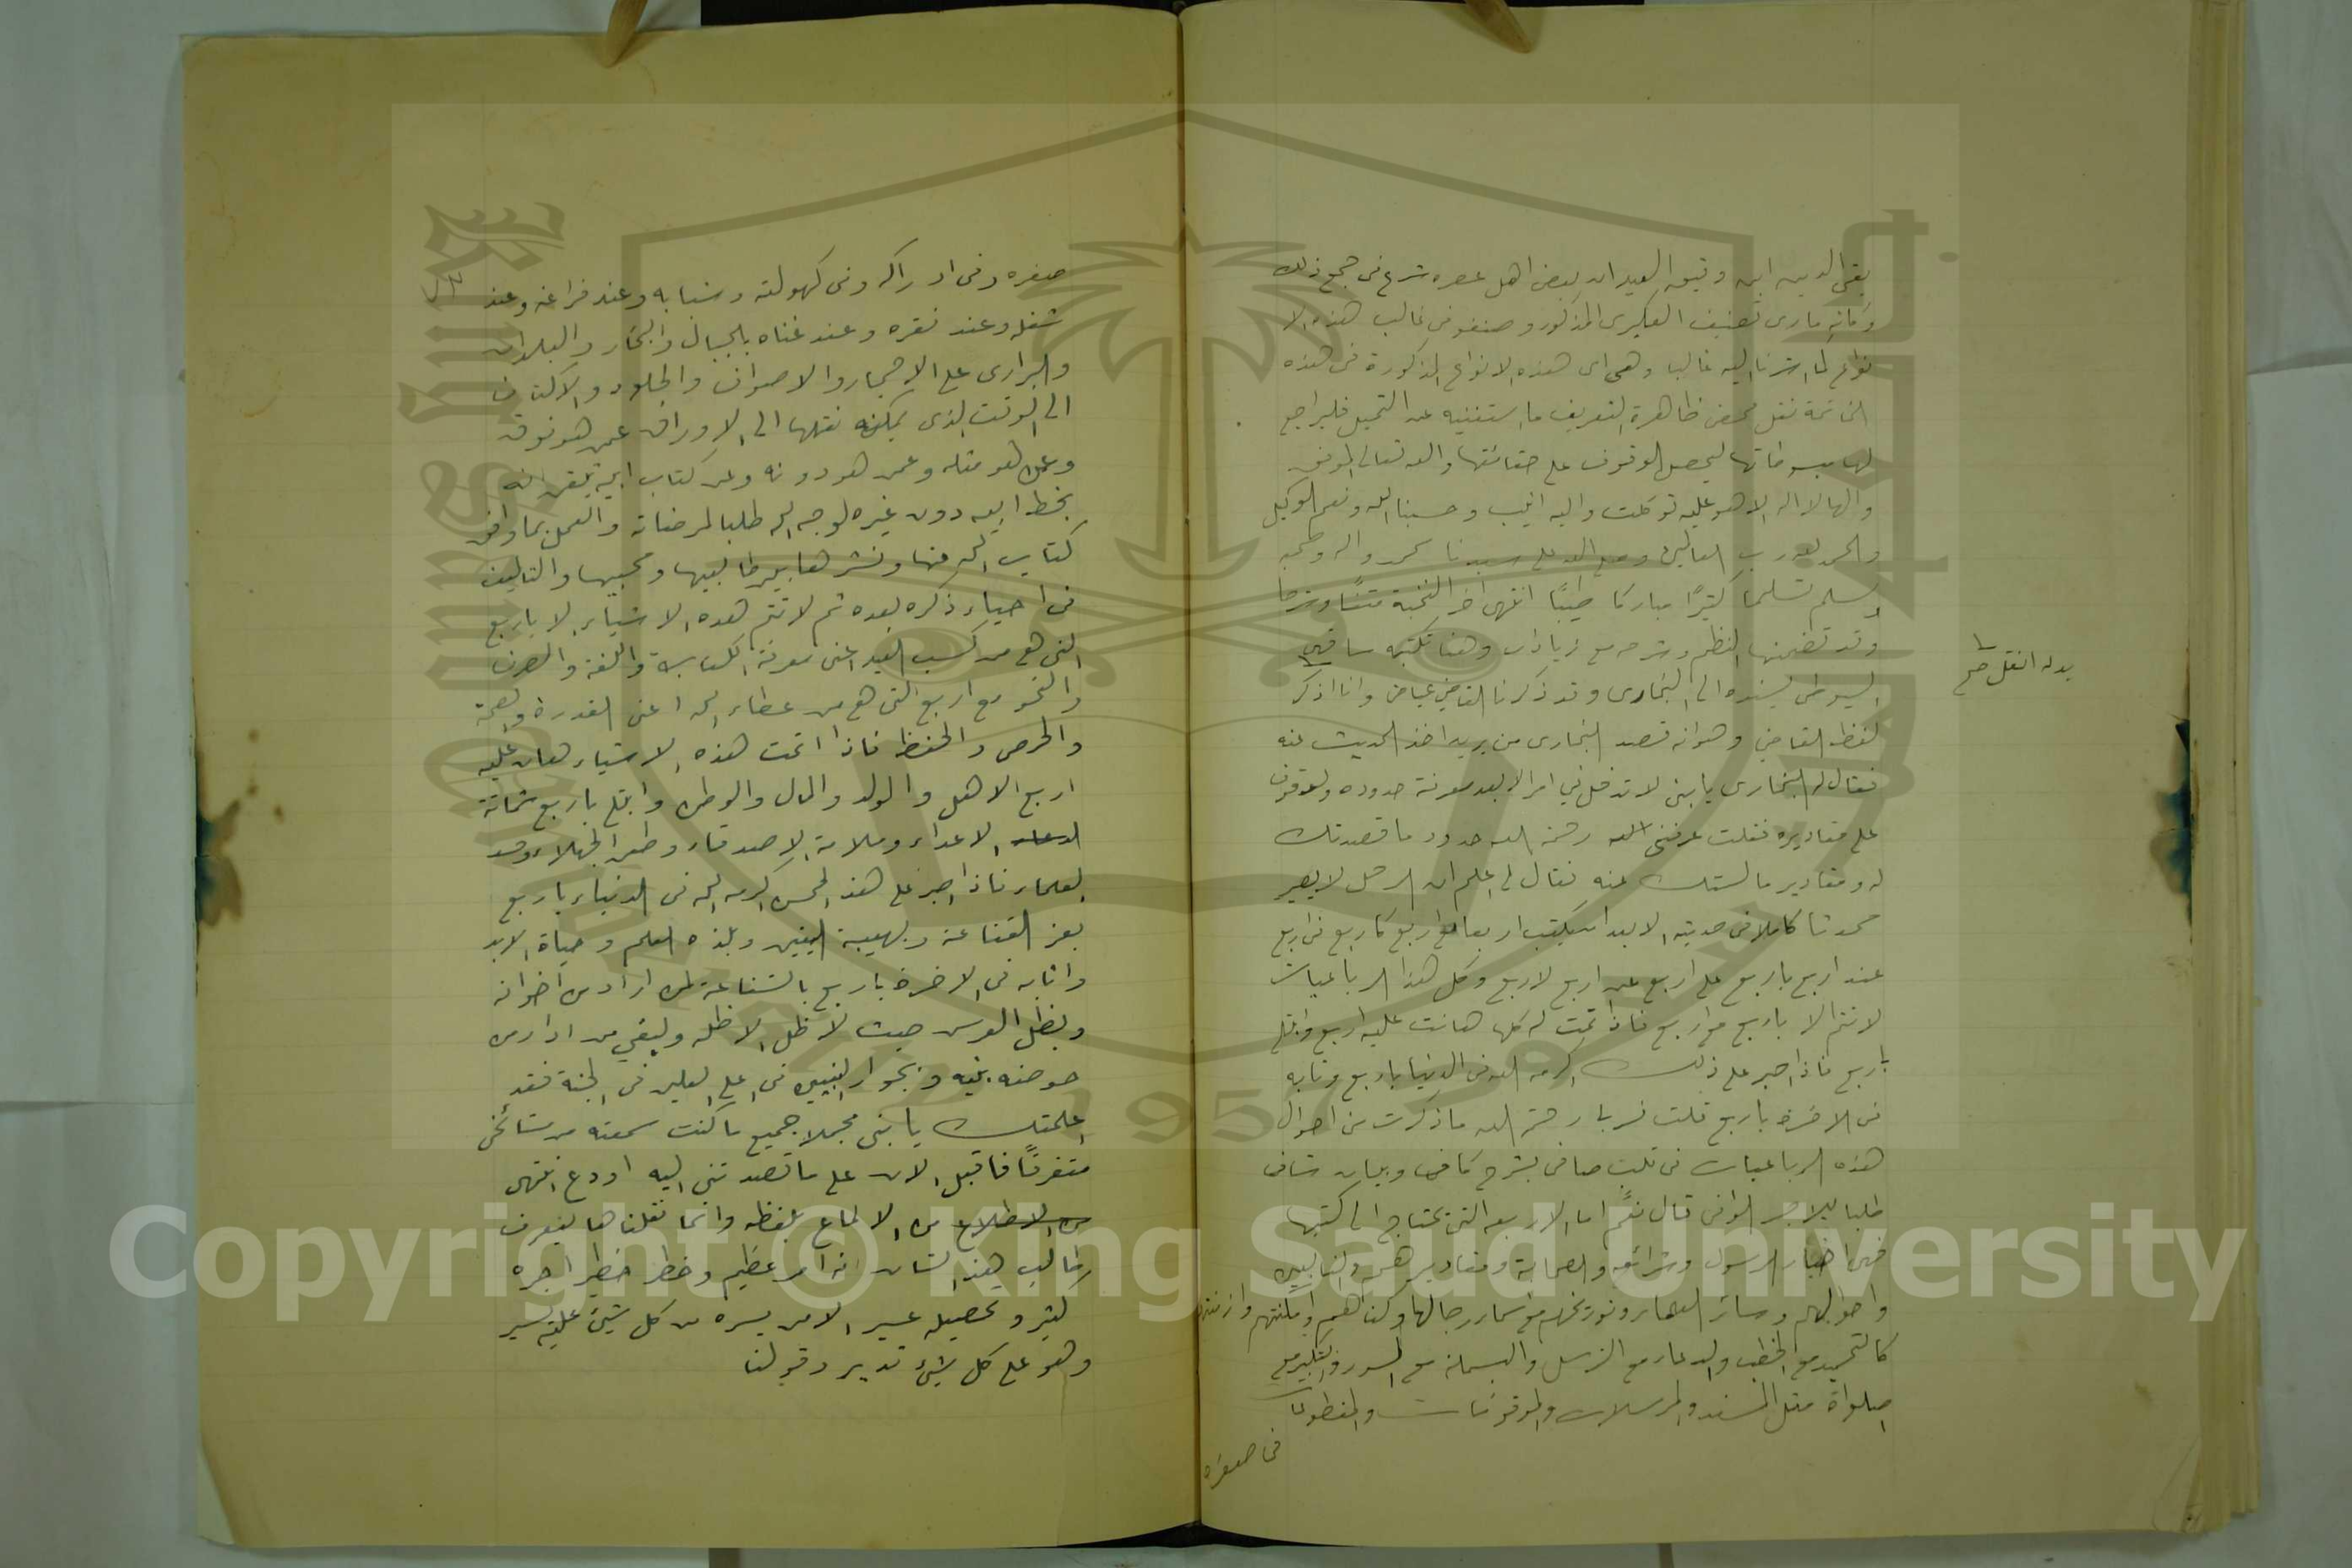 تقي الدين ابن دقيق العيد ان بعض اهل عصره شرع في جمع ذلك
وكانه ما رى تصنيف العكبري المذكور وصنفو في غالب هذه الا
نواع كما اشرنا اليه غالبا وهي اى هذه الانواع المذكورة في هذه
الخاتمة نقل محض ظاهرة التعريف ما ستغنيه عن التمثيل فليراجع
لها مبسوطاتها ليحصل الوقوف على حقائقها والله تعالى الموفق
والها لا اله الا هو عليه توكلت واليه انيب وحسبنا الله ونعم الوكيل
والحمد لله رب العالمين وصلى الله على سيدنا محمد واله وصحبه
وسلم تسليما كثيرًا مباركا طيبًا انتهى اخر النخبة متنًا وشرحا
وقد تضمنها النظم وشرحه مع زيادات وهنا نكتبه ساقه
السيوطي بسنده الى البخارى وقد ذكرنا القاضي عياض وانا اذكر
لفظ القاضي وهو انه قصد البخارى من يريد اخذ الحديث عنه
فقال له البخارى يا بنى لا تدخل في امر الا بعد معرفة حدوده والوقوف
على مقاديره فقلت عرفنى الله رحمة الله حدود ما قصدتك
له ومقادير ما سألتك عنه فقال لى اعلم ان الرجل لا يصير
محدثا كاملا في حديثه الا بعد ان يكتب اربعا مع اربع كاربع في اربع
عند اربع باربع على اربع عن اربع لاربع وكل هذا الرباعيات
لا تتم الا باربع مع اربع فاذا تمت له كلها هانت عليه اربع وابتلى
باربع فاذا صبر على ذلك اكرمه الله في الدنيا باربع وثابه
في الاخرة باربع قلت فسر لي رحمة الله ما ذكرت من احوال
هذه الرباعيات في قلب صافي بشرح كافي وبيان شافي
طلبا للاجر الوافي قال نعم اما الاربعه التى تحتاج الى كتبها
فهي اخبار الرسول وشرائعه والصحابة ومقاديرهم والتابعين
واحوالهم وسائر العلماء وتوريخهم مع اسماء رجالها وكناهم وامكنتهم وازمنتهم
كالتحميد مع الخطب والدعاء مع الترسل والبسملة مع السور والتكبير مع
الصلواة مثل المسند والمرسلات والموقوفات والمقطوعات
في صغره
بدله انقل صح
صغره وفي ادراكه وفي كهولته وشبابه وعند فراغه وعند
شغله وعند فقره وعند غناه بالجبال والبحار والبلدان
والبرارى على الاحجار والاصواف والجلود والاكتاف
الى الوقت الذى يمكنه نقلها الى الاوراق عمن هو فوقه
وعمن هو مثله وعمن هو دونه وعن كتاب ابيه تيقن انه
بخط ابيه دون غيره لوجه الله طلبا لمرضاته والعمل بما وافق
كتاب الله منها ونشرها بين طالبيها ومحبيها والتاليف
في احياء ذكره بعده ثم لا تتم هده الاشياء الا باربع
التى هي من كسب العبد اعنى معرفة الكتابة واللغة والصرف
والنحو مع اربع التى هي من عطاء الله اعنى القدرة والصحة
والحرص والحفظ فاذا اتمت هذه الاشياء هان عليه
اربع الاهل والولد والمال والوطن وابتلى باربع شماتة
الاعداء وملامة الاصدقاء وطعن الجهلاء وحسد
العلماء فاذا صبر على هذ المحن اكرمه الله في الدنياء باربع
بعز القناعة وبهيبة اليقين وبلذه العلم وحياة الابد
واثابه في الاخرة باربع بالشفاعة لمن اراد من اخوانه
وبظل العرش حيث لا ظل الا ظله ويسقي من اراد من
حوض نبيه وبجوار النبيين في اعلى العليين في الجنة فقد
اعلمتك يا بني مجملا جميع ما كنت سمعته من مشائخي
متفرقًا فاقبل الان على ما قصدتنى اليه او دع انتهى
من الاطلاع من الالماع بلفظه وانما نقلناها ليعرف
طالب هذ الشان انه امر عظيم وخطر خطير اجره
كثير وتحصيله عسير الا من يسره من كل شيئ عليه يسير
وهو على كل شيئ قدير وقولنا